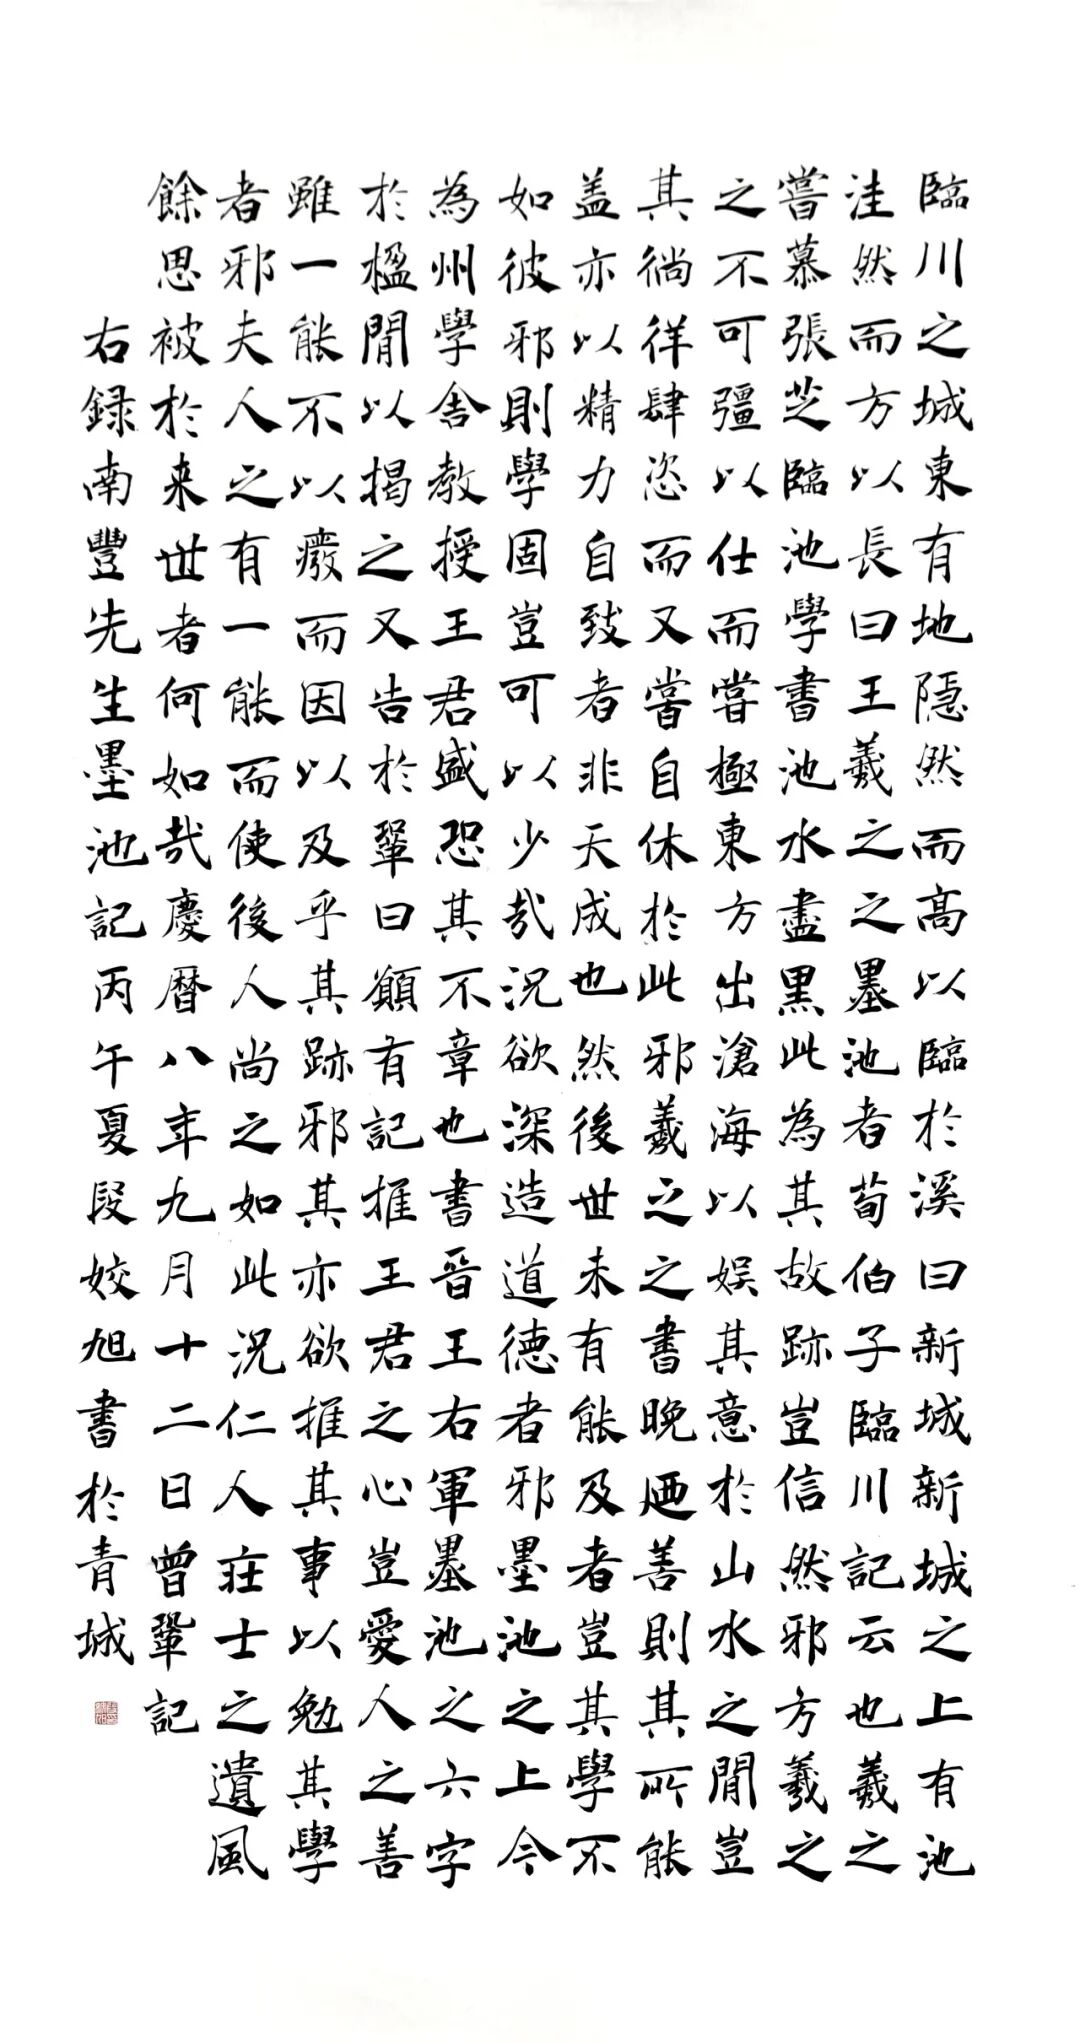 臨川之城東有地隱然而高以臨於溪曰新城新城之上有池
洼然而方以長曰王羲之之墨池者荀伯子臨川記云也羲之
嘗慕張芝臨池學書池水盡黑此為其故跡豈信然邪方羲之
之不可彊以仕而嘗極東方出滄海以娛其意於山水之間豈
其徜徉肆恣而又嘗自休於此邪羲之之書晚廼善則其所能
盖亦以精力自致者非天成也然後世未有能及者豈其學不
如彼邪則學固豈可以少哉況欲深造道德者邪墨池之上今
為州學舍教授王君盛恐其不章也書晉王右軍墨池之六字
於楹間以揭之又告於鞏曰願有記推王君之心豈愛人之善
雖一能不以廢而因以及乎其跡邪其亦欲推其事以勉其學
者邪夫人之有一能而使後人尚之如此況仁人莊士之遺風
餘思被於来世者何如哉慶曆八年九月十二日曾鞏記
右録南豐先生墨池記丙午夏段姣旭書於青城